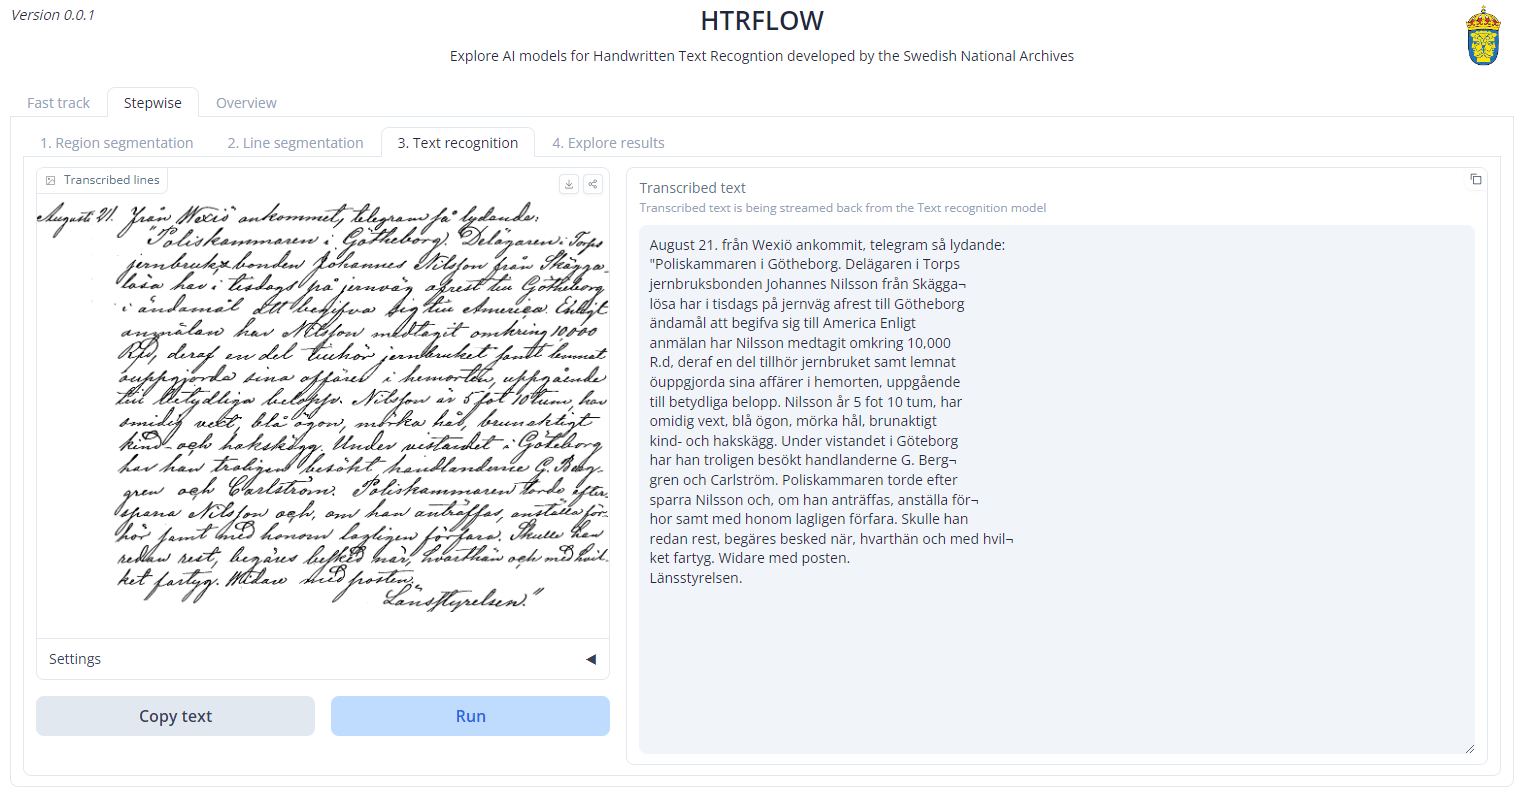 Version 0.0.1
HTRFLOW
Explore AI models for Handwritten Text Recogntion developed by the Swedish National Archives
Fast track
Stepwise
Overview
1. Region segmentation
2. Line segmentation
3. Text recognition
4. Explore results
Transcribed lines
Augusti 21. Från Wexiö ankommet, telegram så lydande:
"Poliskammaren i Götheborg. Delägaren i Torps
jernbruk, bonden Johannes Nilsson från Skägga-
lösa har i tisdags på jernväg afrest till Götheborg
i ändamål att begifva sig till America. Enligt
anmälan har Nilsson medtagit omkring 10,000
Rd, deraf en del tillhör jernbruket samt lemnat
ouppgjorda sina affärer i hemorten, uppgående
till betydliga belopp. Nilsson är 5 fot 10 tum, har
smidig vext, blå ögon, mörka hår, brunaktigt
kind- och hakskägg. Under vistandet i Göteborg
har han troligen besökt handlanderne G. Berg-
gren och Carlström. Poliskammaren torde efter-
spana Nilsson och, om han anträffas, anställa för-
hör samt med honom lagligen förfara. Skulle han
redan rest, begäres besked när, hvarthän och med hvil-
ket fartyg. Widare med posten.
Länsstyrelsen."
Settings
Copy text
Run
Transcribed text
Transcribed text is being streamed back from the Text recognition model
August 21. från Wexiö ankommit, telegram så lydande:
"Poliskammaren i Götheborg. Delägaren i Torps
jernbruksbonden Johannes Nilsson från Skägga¬
lösa har i tisdags på jernväg afrest till Götheborg
ändamål att begifva sig till America Enligt
anmälan har Nilsson medtagit omkring 10,000
R.d, deraf en del tillhör jernbruket samt lemnat
öuppgjorda sina affärer i hemorten, uppgående
till betydliga belopp. Nilsson år 5 fot 10 tum, har
omidig vext, blå ögon, mörka hål, brunaktigt
kind- och hakskägg. Under vistandet i Göteborg
har han troligen besökt handlanderne G. Berg¬
gren och Carlström. Poliskammaren torde efter
sparra Nilsson och, om han anträffas, anställa för¬
hor samt med honom lagligen förfara. Skulle han
redan rest, begäres besked när, hvarthän och med hvil¬
ket fartyg. Widare med posten.
Länsstyrelsen.